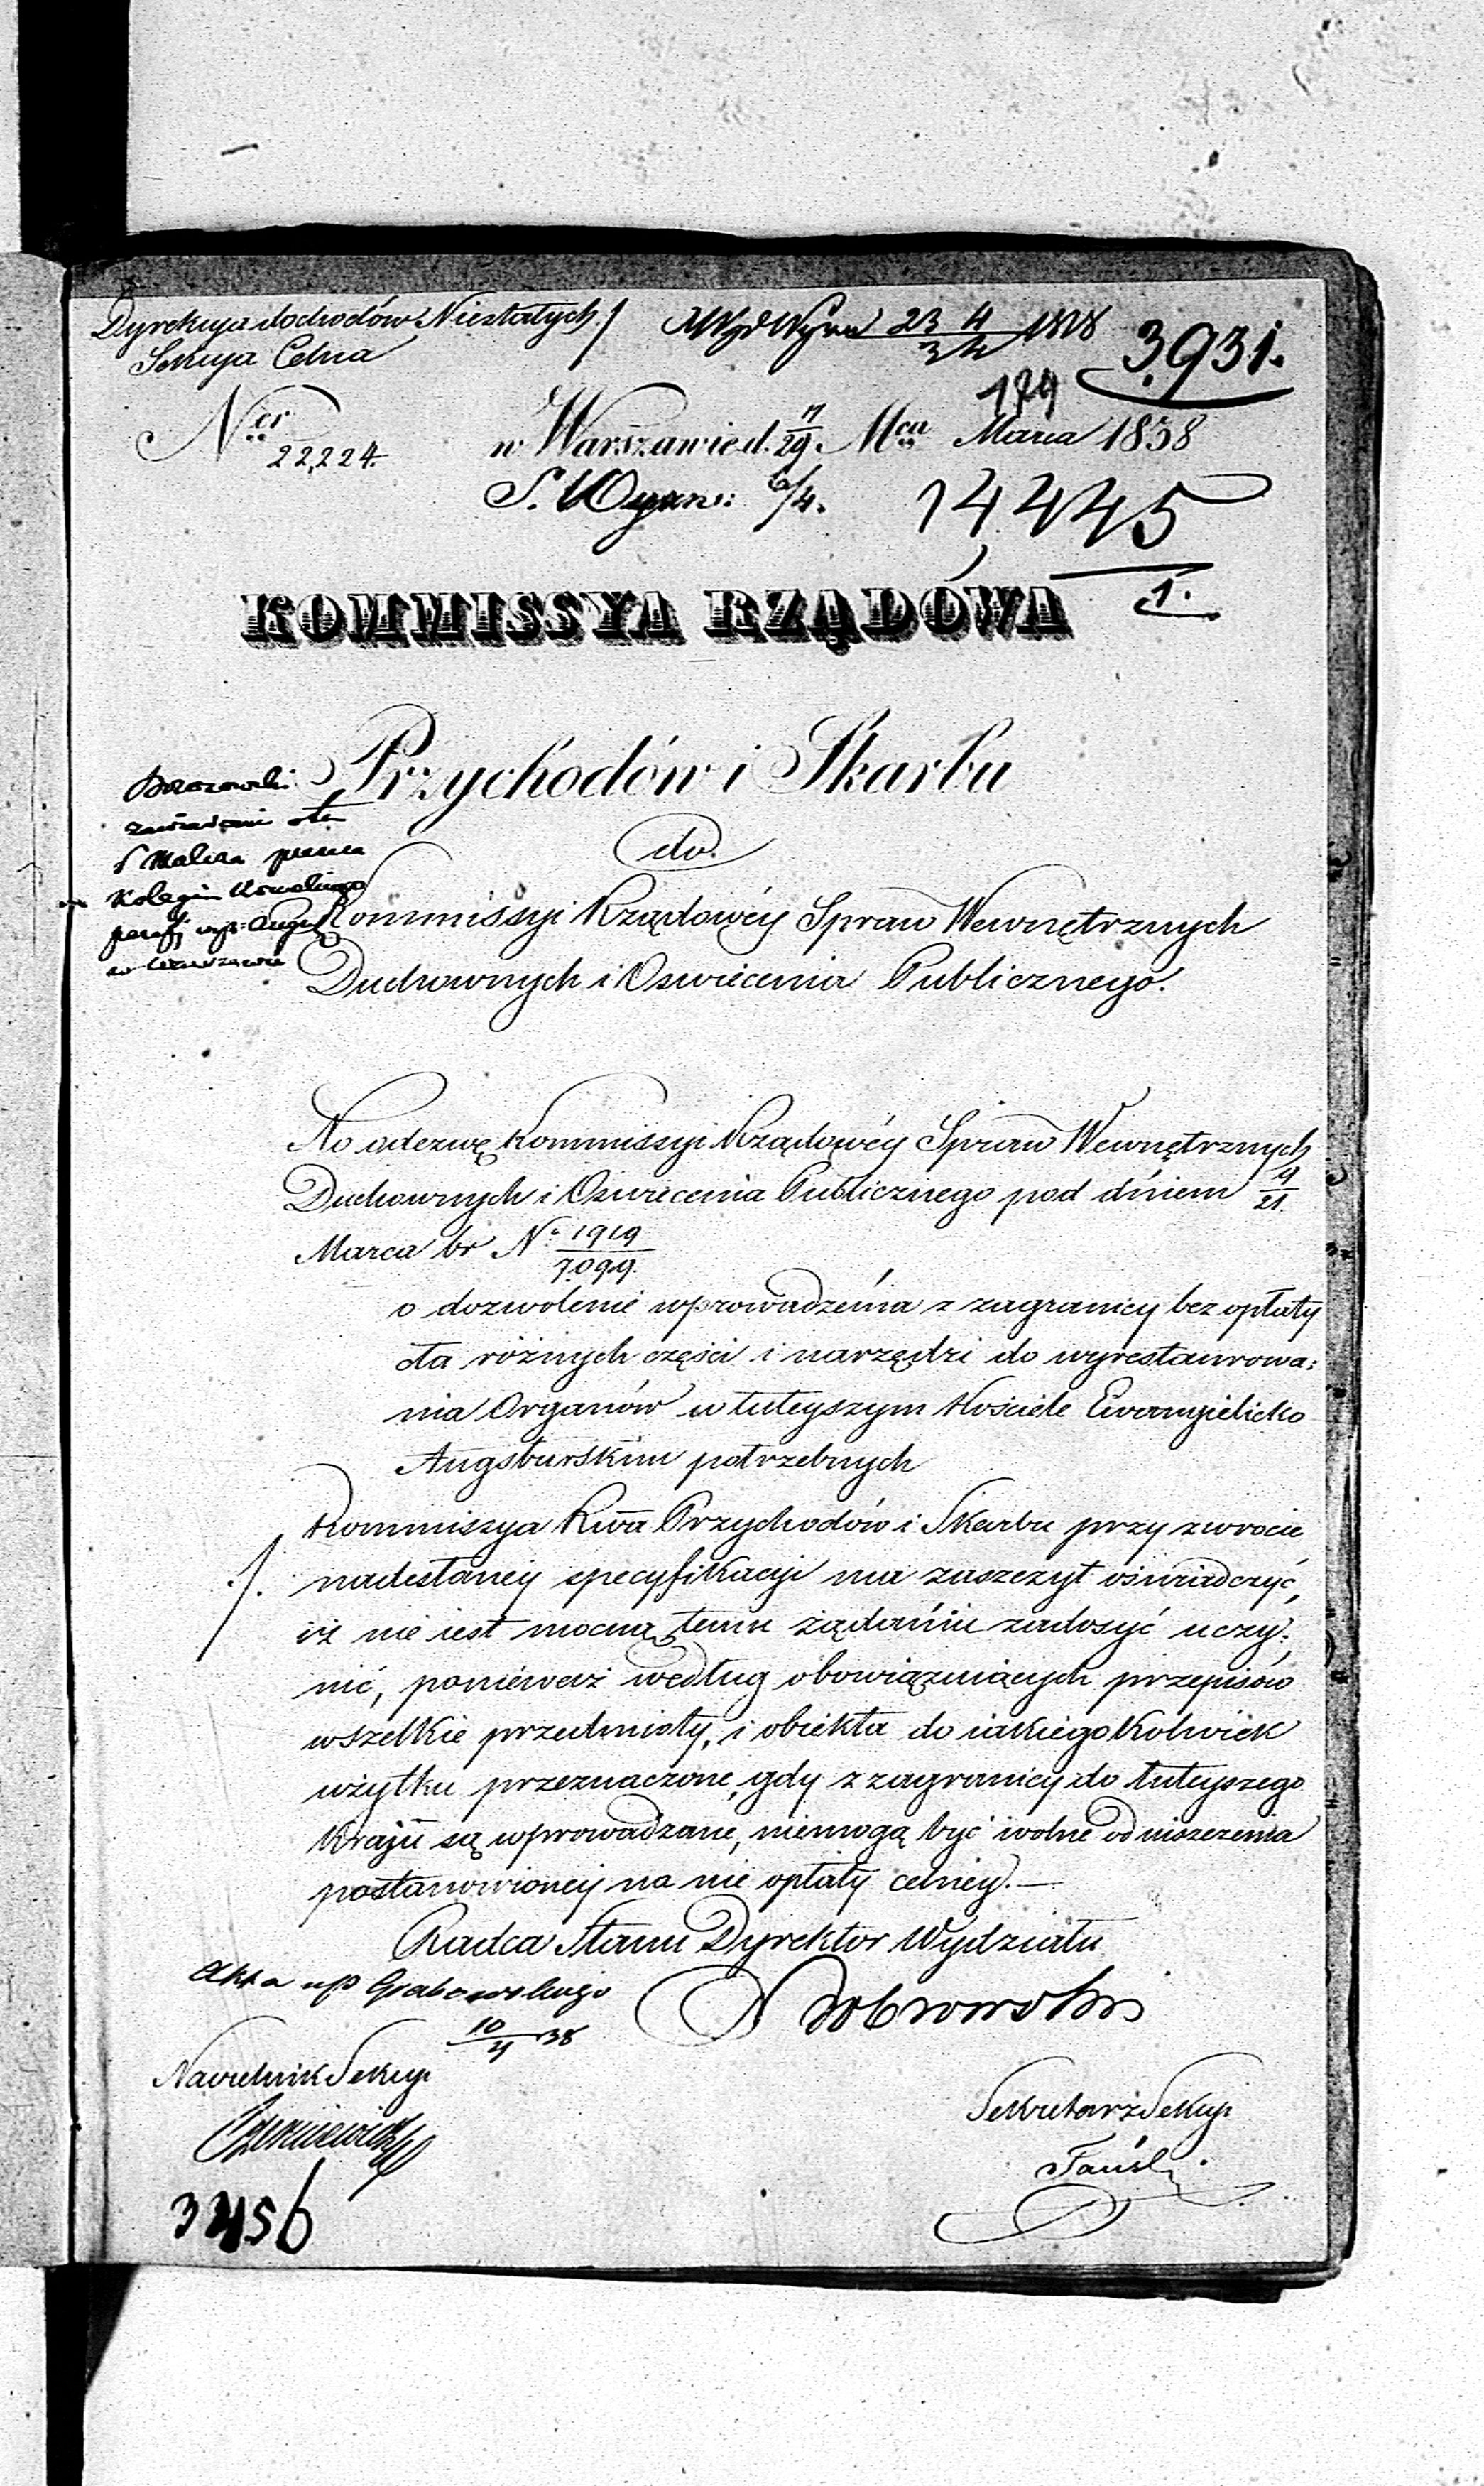 Dyrekcya dochodów Niestałych
Sekcya Celna
23 4 1838
3931.
179
Ner
22,224.
w Warszawie d. 17/29. Mca Marca 1838
6/4.
14445
1.
KOMMISSYA RZĄDOWA
Przychodów i Skarbu
do
Kommissyi Rządowéy Spraw Wewnętrznych
Duchownych i Oświecenia Publicznego.
w Warszawie
Na odezwę Kommissyi Rządowéy Spraw Wewnętrznych
Duchownych i Oświecenia Publicznego pod dniem 9/21.
Marca br No 1919/7099.
o dozwolenie wprowadzenia z zagranicy bez opłaty
cła różnych części i narzędzi do wyrestaurowa:
nia Organów w tuteyszym Kościele Ewangielicko
Augsburskim potrzebnych
Kommissya Rwa Przychodów i Skarbu przy zwrocie
./. nadesłaney specyfikacyi ma zaszczyt oświadczyć,
iż nie iest mocną temu żądaniu zadosyć uczy:
nić, ponieważ według obowiązuiących przepisów
wszelkie przedmioty, i obiekta do iakiegokolwiek
użytku przeznaczone, gdy z zagranicy do tuteyszego
Kraju są wprowadzane, niemogą być wolne od uiszczenia
postanowioney na nie opłaty celney.—
Radca Stanu Dyrektor Wydziału
Akta up Grabowskiego
10/4 38
Naczelnik Sekcyi
Sekretarz Sekcyi
3456